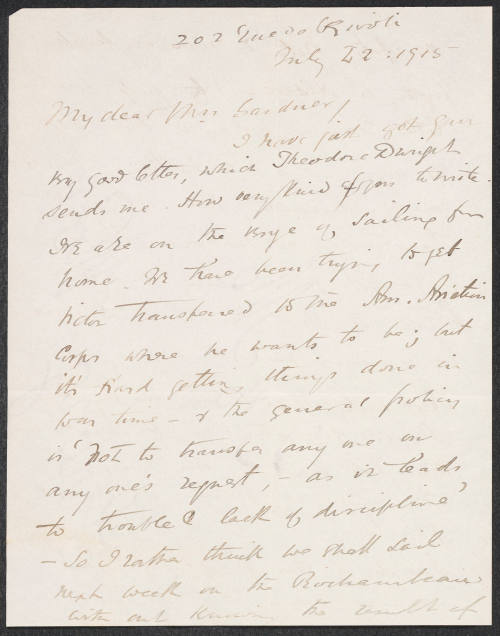 202 Rue de Rivoli
July 22 : 1915
My dear Mrs Gardner,
I have just got your
very good letter, which Theodore Dwight
sends me. How very kind of you to write.
We are on the verge of sailing for
home. We have been trying to get
Victor transferred to the Am. Aviation
Corps where he wants to be; but
it's hard getting things done in
war time – & the general policy
is 'not to transfer any one on
any one's request, – as it leads
to trouble & lack of discipline'
– So I rather think we shall sail
next week on the Rochambeau
without knowing the result of